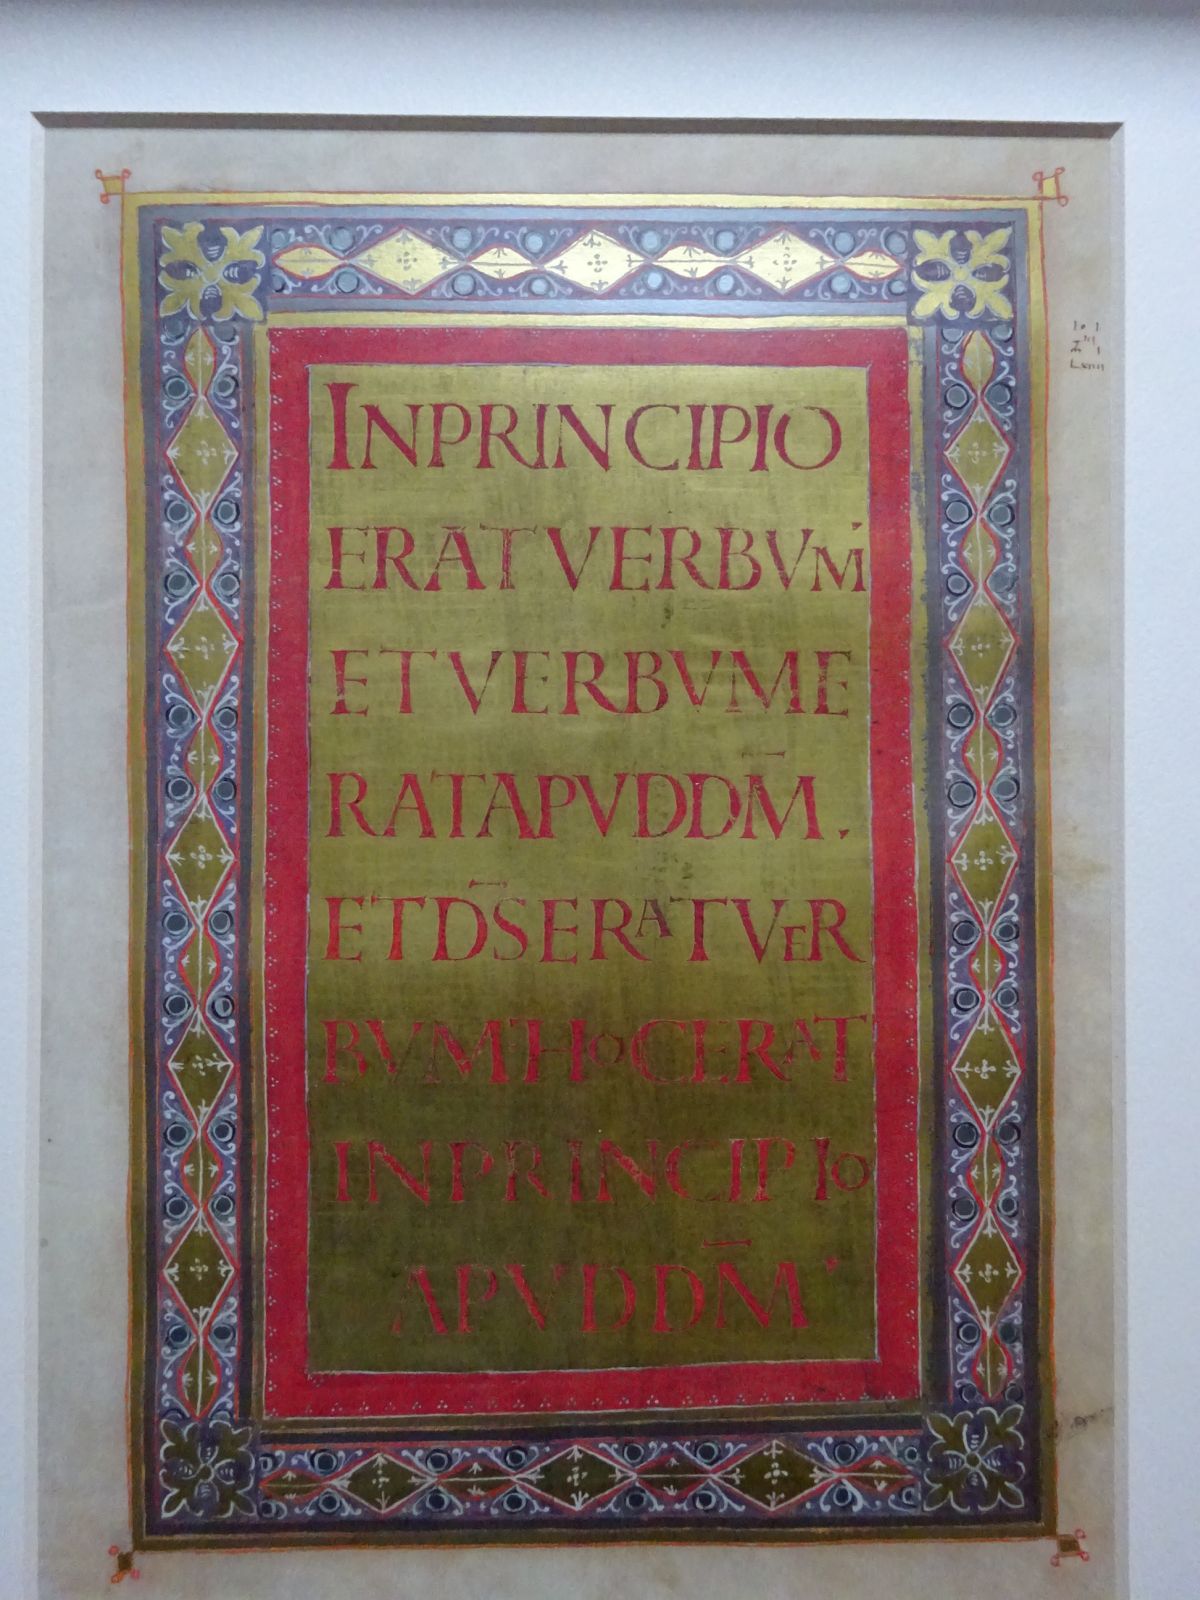 INPRINCIPIO
ERATVERBVM
ETVERBVME
RATAPVDDM̄.
ETDS̄ERATVER
BVM·HOCERAT
INPRINCIPIO
APVDDM̄·